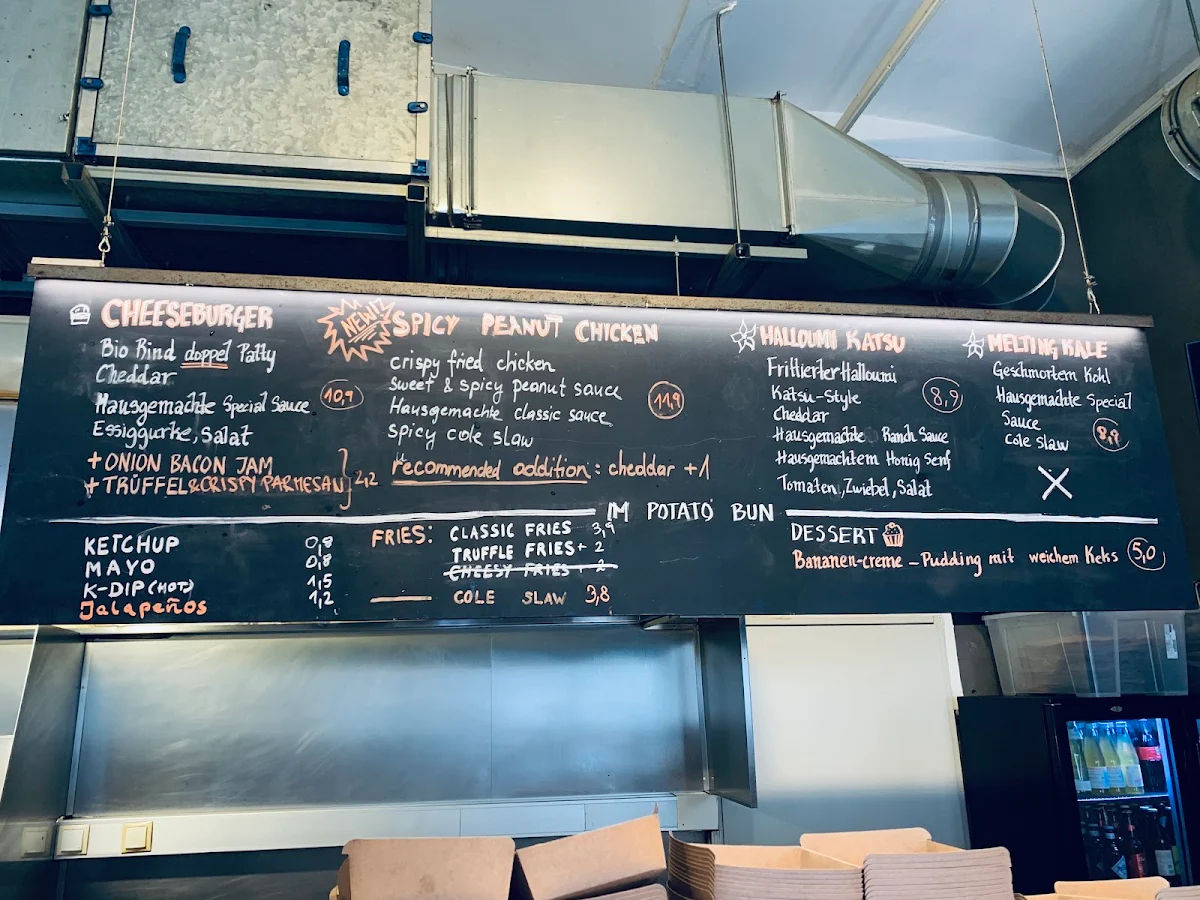 CHEESEBURGER
Bio Rind doppel Patty
Cheddar
Hausgemachte Special Sauce
10,9
Essiggurke, Salat
+ ONION BACON JAM
+ TRÜFFEL & CRISPY PARMESAN
2,2
NEW!
SPICY PEANUT CHICKEN
crispy fried chicken
sweet & spicy peanut sauce
Hausgemachte classic sauce
11,9
spicy cole slaw
recommended addition: cheddar +1
HALLOUMI KATSU
Frittierter Halloumi
Katsu-Style
8,9
Cheddar
Hausgemachte Ranch Sauce
Hausgemachtem Honig Senf
Tomaten, Zwiebel, Salat
MELTING KALE
Geschmortem Kohl
Hausgemachte Special
Sauce
Cole Slaw
8,9
IM POTATO BUN
KETCHUP 0,8
MAYO 0,8
K-DIP (HOT) 1,5
Jalapeños 1,2
FRIES: CLASSIC FRIES 3,9
TRUFFLE FRIES + 2
CHEESY FRIES + 2
COLE SLAW 3,8
DESSERT
Bananen-creme - Pudding mit weichem Keks 5,0